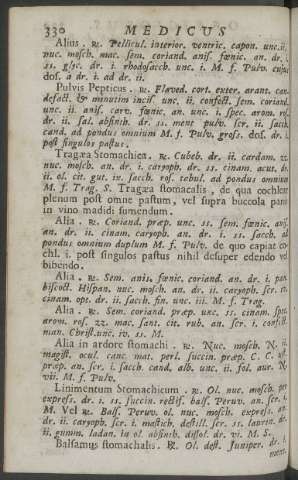 330 MEDICUS
Alius. ℞. Pellicul. interior. ventric. capon. unc. ii.
nuc. mosch. mac. sem. coriand. anis. fœnic. an. dr. i.
ss. glyc. dr. i. rhodosacch. unc. i. M. f. Pulv. cujus
dos. a dr. i. ad dr. ii.
Pulvis Pepticus. ℞. Flaved. cort. exter. arant. can.
defact. & minutim incis. unc. ii. confect. sem. coriand.
unc. ii. anis. carv. fœnic. an. unc. i. spec. arom. ros.
dr. ii. sal. absinth. dr. ss. ment pulv. scr. ii. sacch.
cand. ad pondus omnium M. f. Pulv. gross. dos. dr. i.
post singulos pastus.
Tragæa Stomachica. ℞. Cubeb. dr. ii. cardam. zz.
nuc. mosch. an. dr. i. caryoph. dr. ss. cinam. acut. dr.
ii. ol. cit. gut. iv. sacch. ros. tabul. ad pondus omnium
M. f. Trag. S. Tragæa stomacalis, de qua cochlear
plenum post omne pastum, vel supra buccola pani
in vino madidi sumendum.
Alia. ℞. Coriand. præp. unc. ss. sem. fœnic. anis.
an. dr. ii. cinam. caryoph. an. dr. i. ss. sacch. ad
pondus omnium duplum M. f. Pulv. de quo capiat co-
chl. i. post singulos pastus nihil desuper edendo vel
bibendo.
Alia. ℞. Sem. anis. fœnic. coriand. an. dr. i. pan.
biscoct. Hispan. nuc. mosch. an. dr. ii. caryoph. scr. ii.
cinam. opt. dr. ii. sacch. fin. unc. iii. M. f. Trag.
Alia. ℞. Sem. coriand. præp. unc. ss. cinam. spec.
arom. ros. zz. mac. sant. cit. rub. an. scr. i. confect.
man. Christ. unc. iv. ss. M.
Alia in ardore stomachi. ℞. Nuc. mosch. N. ii.
magist. ocul. canc. mat. perl. succin. præp. C. C.
præp. an. scr. i. sacch. cand. alb. unc. ii. fol. aur. N.
vii. M. f. Pulv.
Linimentum Stomachicum. ℞. Ol. nuc. mosch. per
express. dr. i. ss. succin. rectif. bals. Peruv. an. scr. i.
M. Vel ℞. Bals. Peruv. ol. nuc. mosch. express. an.
dr. ii. caryoph. scr. i. mastich. destill. scr. ss. laurin. dr.
ii. gumm. ladan. in ol. absinth. dissol. dr. vi. M. S.
Balsamus stomachalis. ℞. Ol. dest. Juniper. dr. i.